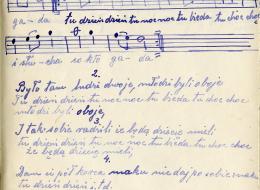 ga - da tu dzień dzień tu noc noc tu bieda tu choc choc
i słu - cha so kto ga - da
2.
Było tam ludzi dwoje, młodzi byli oboje
Tu dzień dzień tu noc noc tu bieda tu choc choc
młodzi byli oboje,
3.
I tak sobie radzili że będą dziecię mieli
tu dzień dzień tu noc noc tu bieda tu choc choc
że będą dziecię mieli,
4.
Dam ci pół korca maku nie daj po sobie znaku
tu dzień dzień i.t.d.